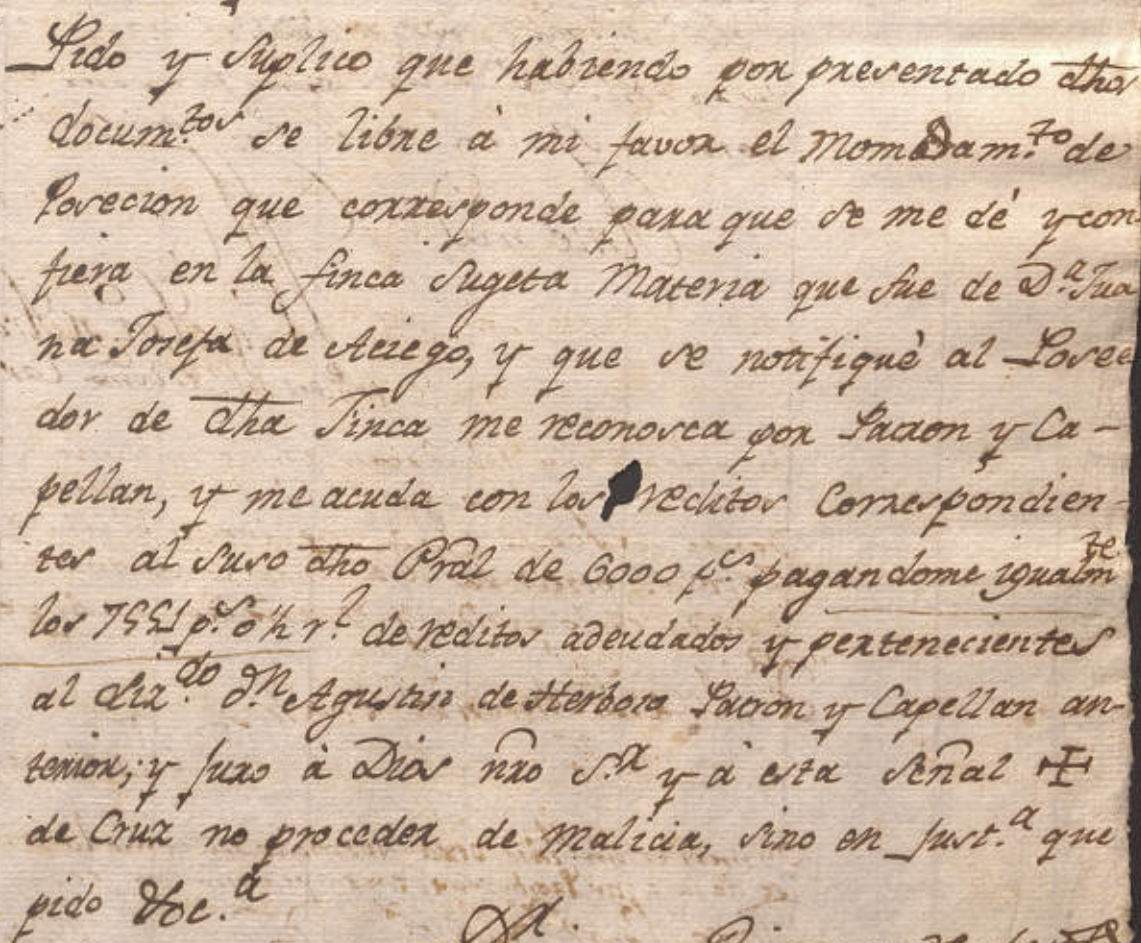 Pido y suplico que habiendo por presentado dhos
docum.tos se libre à mi favor el Momadam.to de
Posecion que corresponde para que se me dé y con
fiera en la finca sugeta Materia que fue de D.a Jua
na Josefa de Aciego, y que se notifiquè al Posee
dor de dha Finca me reconosca por Patron y Ca-
pellan, y me acuda con los reditos Correspondien-
tes al suso dho Pral de 6000 p.s pagandome igualm.te
los p.s ½ r.l de reditos adeudados y pertenecientes
al Liz.do dn Agustin de Herboso Patron y Capellan an-
terior; y juro à Dios nro S.r y à esta señal ✠
de Cruz no proceder de Malicia, sino en Just.a que
pido &c.a